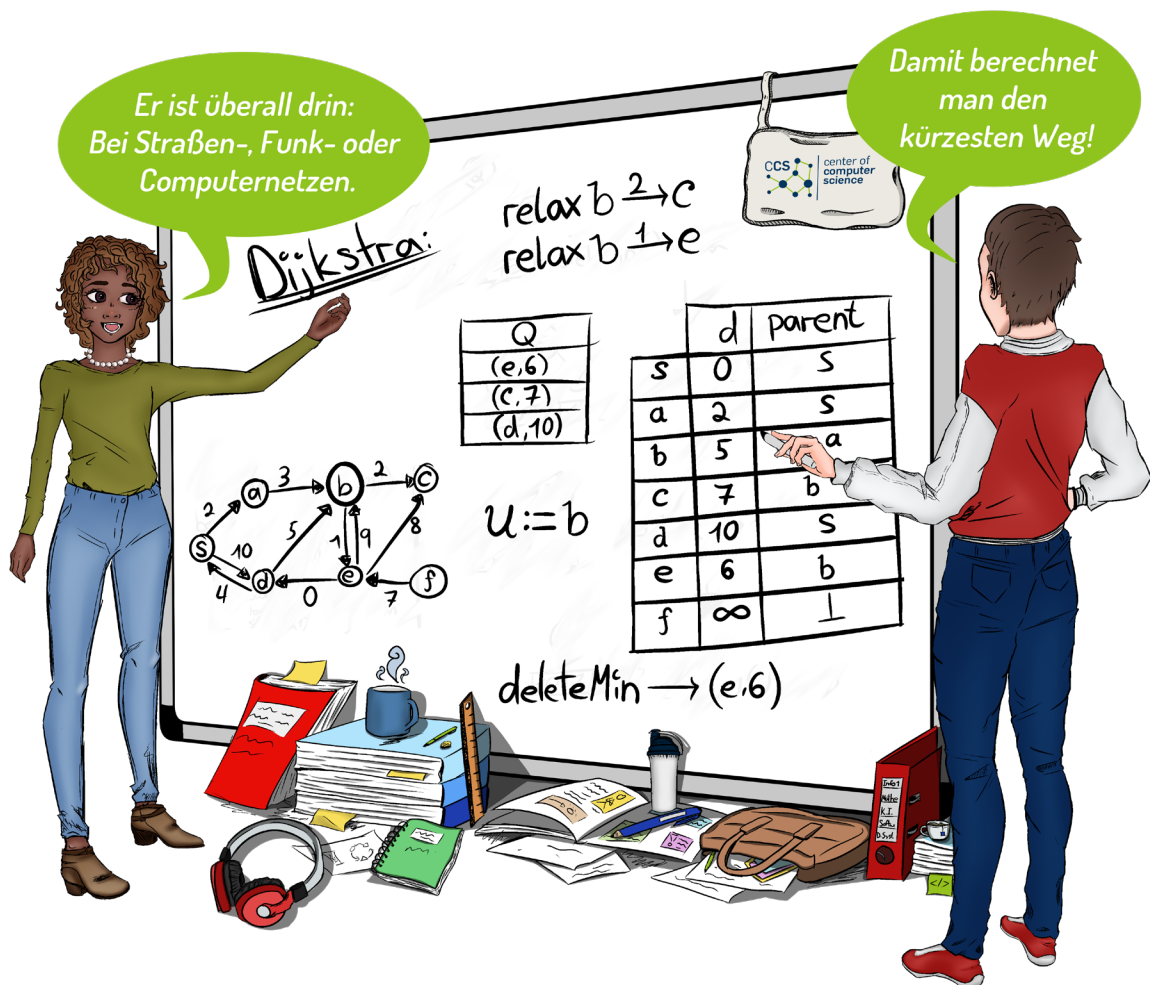 Er ist überall drin:
Bei Straßen-, Funk- oder
Computernetzen.
Damit berechnet
man den
kürzesten Weg!
CCS
center of
computer
science
Dijkstra:
relax b 2→ c
relax b 1→ e
Q
(e,6)
(c,7)
(d,10)
d parent
s 0 s
a 2 s
b 5 a
c 7 b
d 10 s
e 6 b
f ∞ ⊥
a 3 b 2 c
2 5 1 9 8
s 10 d e f
4 0 7
u:=b
deleteMin → (e,6)
Info1
Mathe
K.I.
Softw
D.Syst.
</>